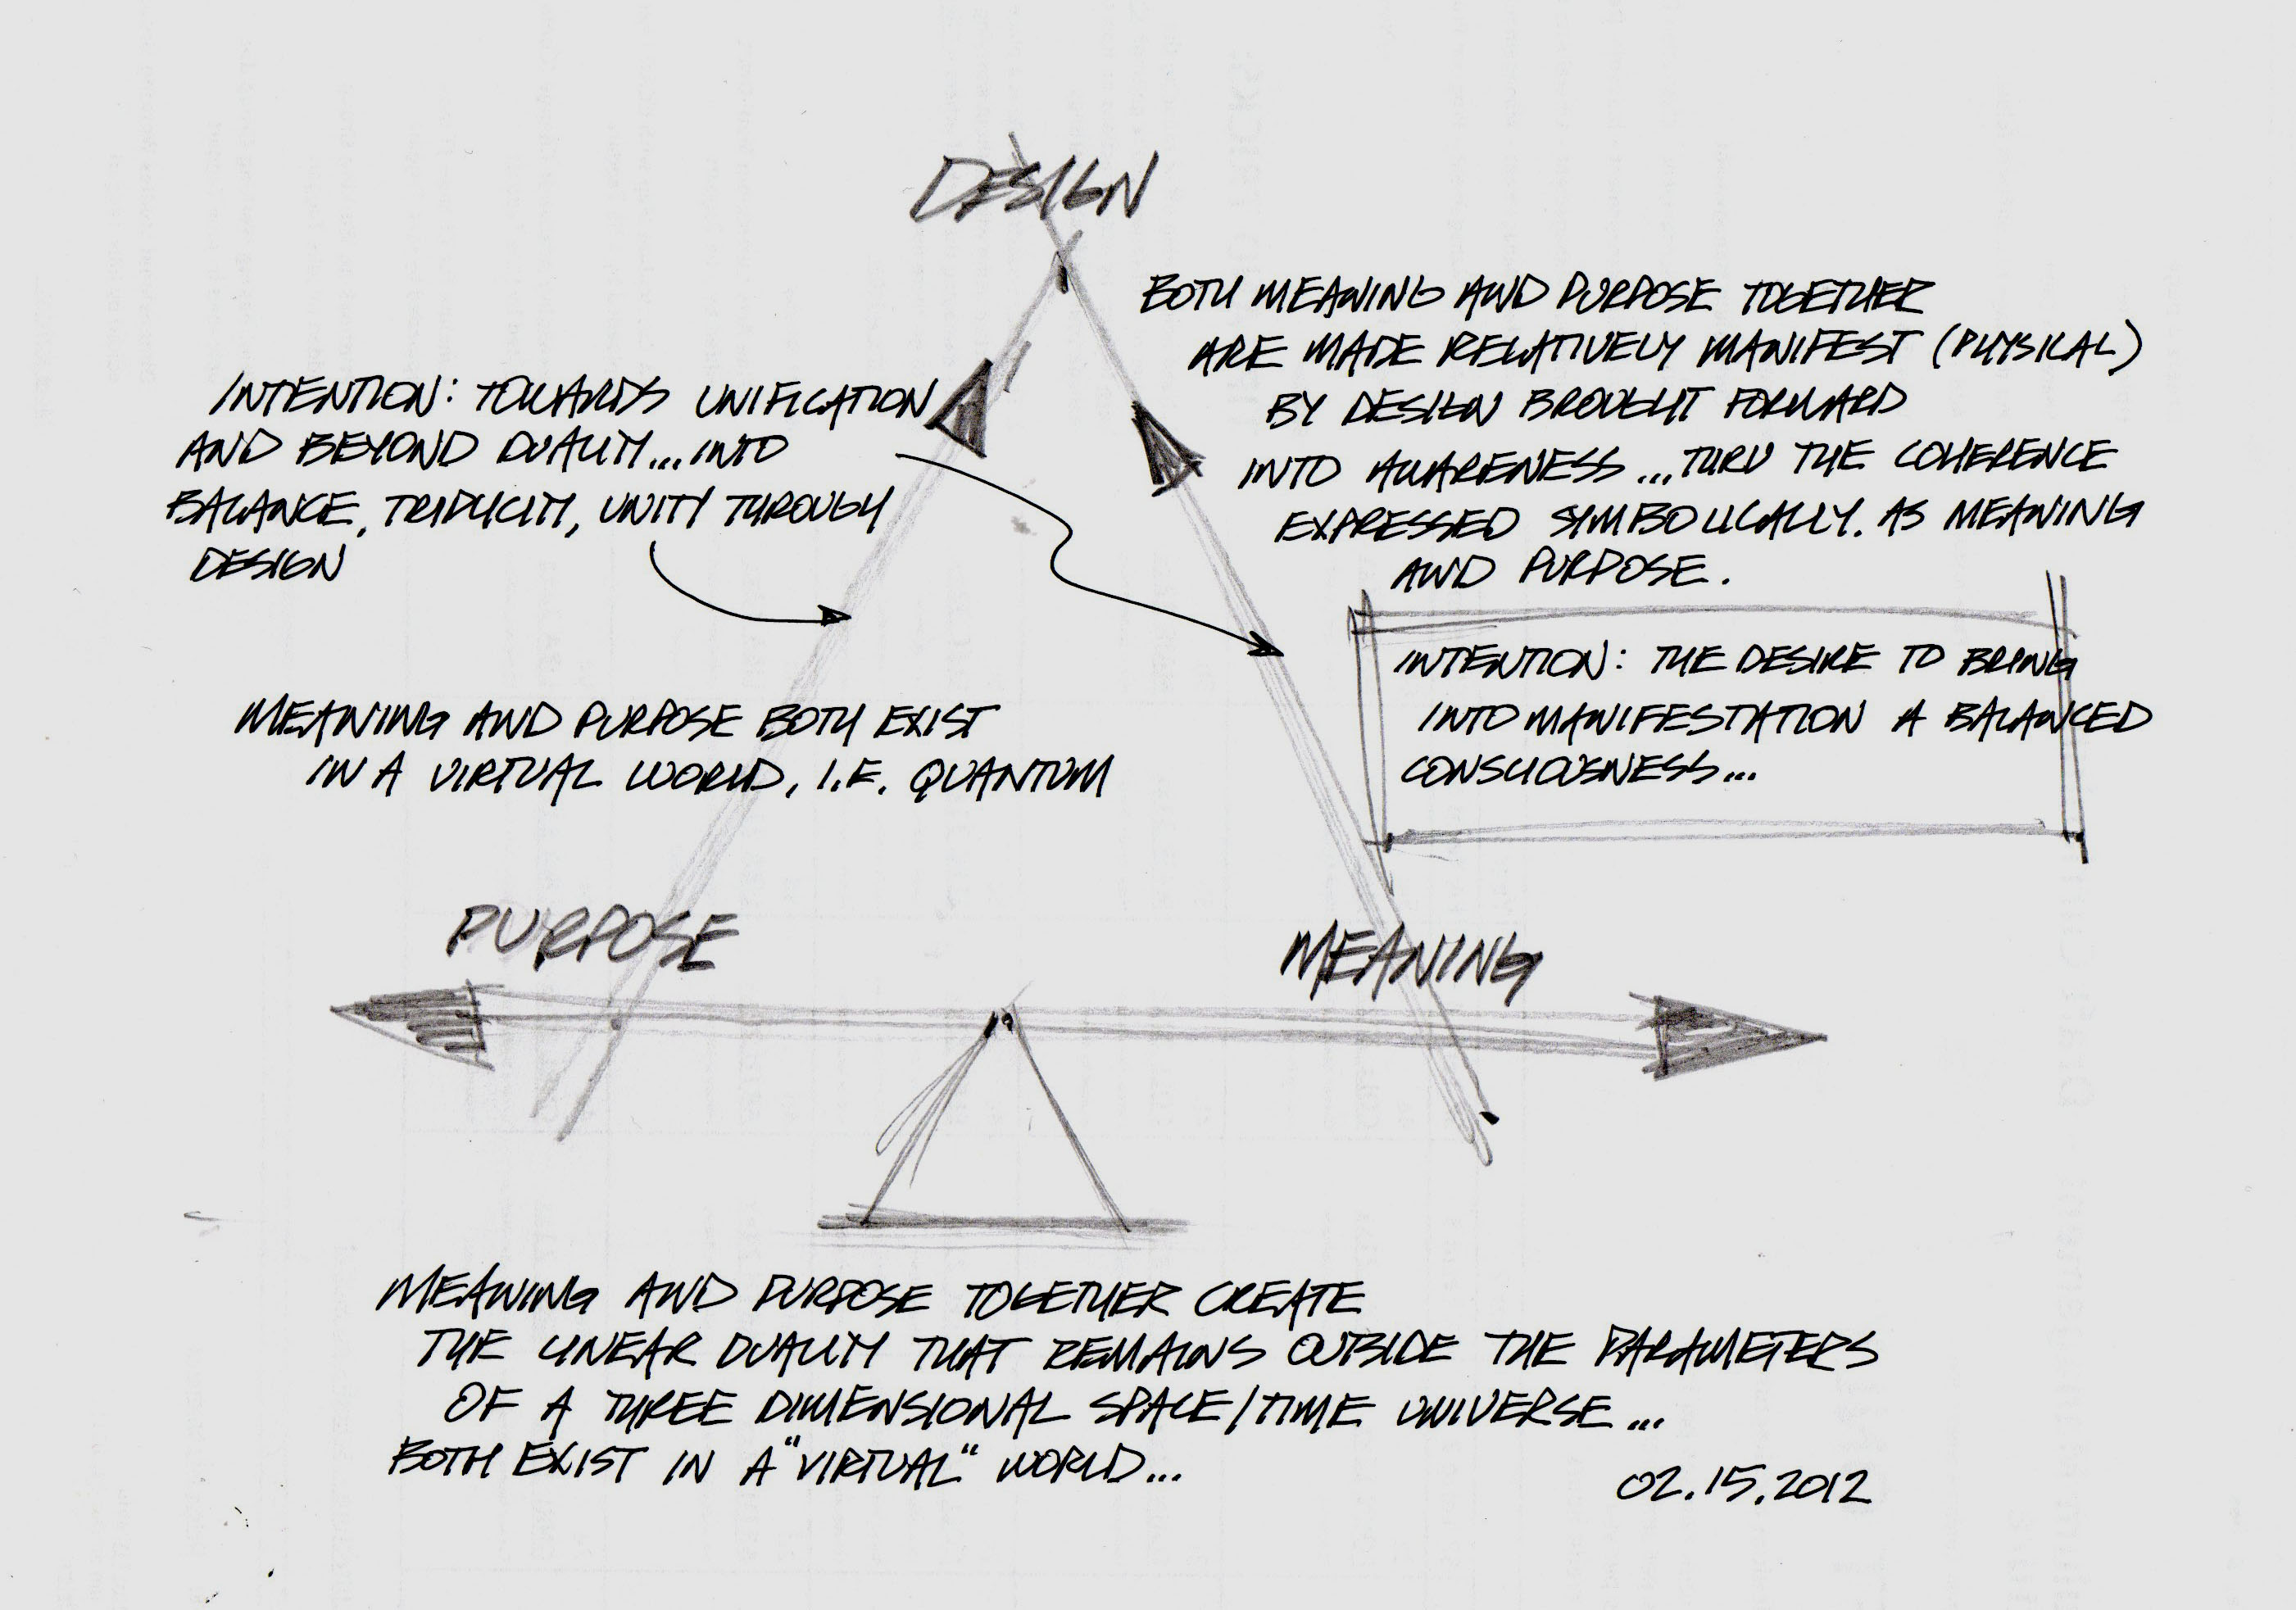 DESIGN
BOTH MEANING AND PURPOSE TOGETHER
ARE MADE RELATIVELY MANIFEST (PHYSICAL)
BY DESIGN BROUGHT FORWARD
INTO AWARENESS...THRU THE COHERENCE
EXPRESSED SYMBOLICALLY. AS MEANING
AND PURPOSE.
INTENTION: TOWARDS UNIFICATION
AND BEYOND DUALITY...INTO
BALANCE, TRIPLICITY, UNITY THROUGH
DESIGN
INTENTION: THE DESIRE TO BRING
INTO MANIFESTATION A BALANCED
CONSCIOUSNESS...
MEANING AND PURPOSE BOTH EXIST
IN A VIRTUAL WORLD, I.E. QUANTUM
PURPOSE
MEANING
MEANING AND PURPOSE TOGETHER CREATE
THE LINEAR DUALITY THAT REMAINS OUTSIDE THE PARAMETERS
OF A THREE DIMENSIONAL SPACE/TIME UNIVERSE...
BOTH EXIST IN A "VIRTUAL" WORLD...
02.15.2012